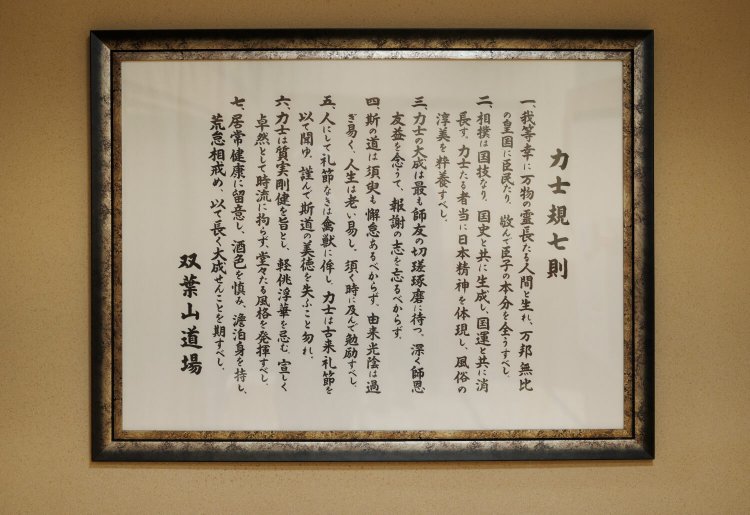 力士規七則
一、我等幸に万物の霊長たる人間と生れ、万邦無比
の皇国に臣民たり、敬んで臣子の本分を全うすべし、
二、相撲は国技なり、国史と共に生成し、国運と共に消
長す、力士たる者当に日本精神を体現し、風俗の
淳美を粋養すべし、
三、力士の大成は最も師友の切瑳琢磨に待つ、深く師恩
友益を念うて、報謝の志を忘るべからず、
四、斯の道は須臾も懈怠あるべからず、由来光陰は過
ぎ易く、人生は老い易し、須く時に及んで勉励すべし、
五、人にして礼節なきは禽獣に侔し、力士は古来礼節を
以て聞ゆ、謹んで斯道の美徳を失ふこと勿れ、
六、力士は質実剛健を旨とし、軽佻浮華を忌む、宣しく
卓然として時流に拘らず、堂々たる風格を発揮すべし、
七、居常健康に留意し、酒色を慎み、澹泊身を持し、
荒怠相戒め、以て長く大成せんことを期すべし、
双葉山道場